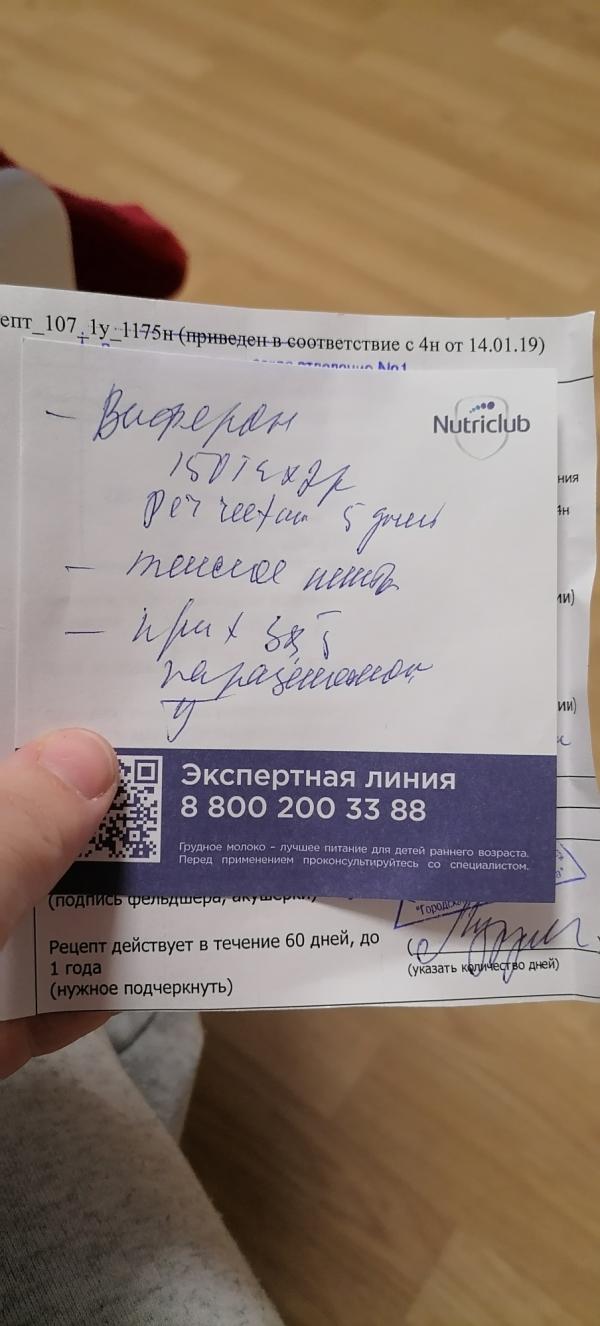 епт_107_1у_1175н (приведен в соответствие с 4н от 14.01.19)
отделение №1
Nutriclub
– Виферон
150 х 2р
5 дней
– теплое питье
– при
парацетамол
ния
ии)
ии)
Экспертная линия
8 800 200 33 88
Грудное молоко – лучшее питание для детей раннего возраста.
Перед применением проконсультируйтесь со специалистом.
(подпись фельдшера, акушерки)
Рецепт действует в течение 60 дней, до
1 года
(указать количество дней)
(нужное подчеркнуть)